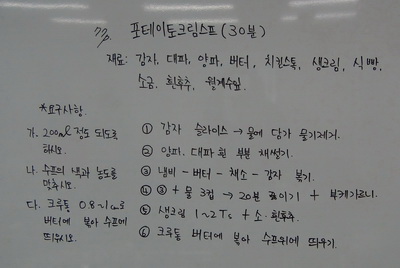 포테이토크림스프 (30분)
재료: 감자, 대파, 양파, 버터, 치킨스톡, 생크림, 식빵,
소금, 흰후추, 월계수잎
*요구사항.
가. 200ml 정도 되도록
하시오.
나. 수프의 색과 농도를
맞추시오.
다. 크루통 0.8~1cm로
버터에 볶아 수프에
띄우시오.
① 감자 슬라이스 → 물에 담가 물기제거.
② 양파, 대파 흰 부분 채썰기.
③ 냄비 - 버터 - 채소 - 감자 볶기.
④ ③ + 물 3컵 → 20분 끓이기 + 부케가르니.
⑤ 생크림 1~2Ts + 소·흰후추.
⑥ 크루통 버터에 볶아 수프위에 띄우기.